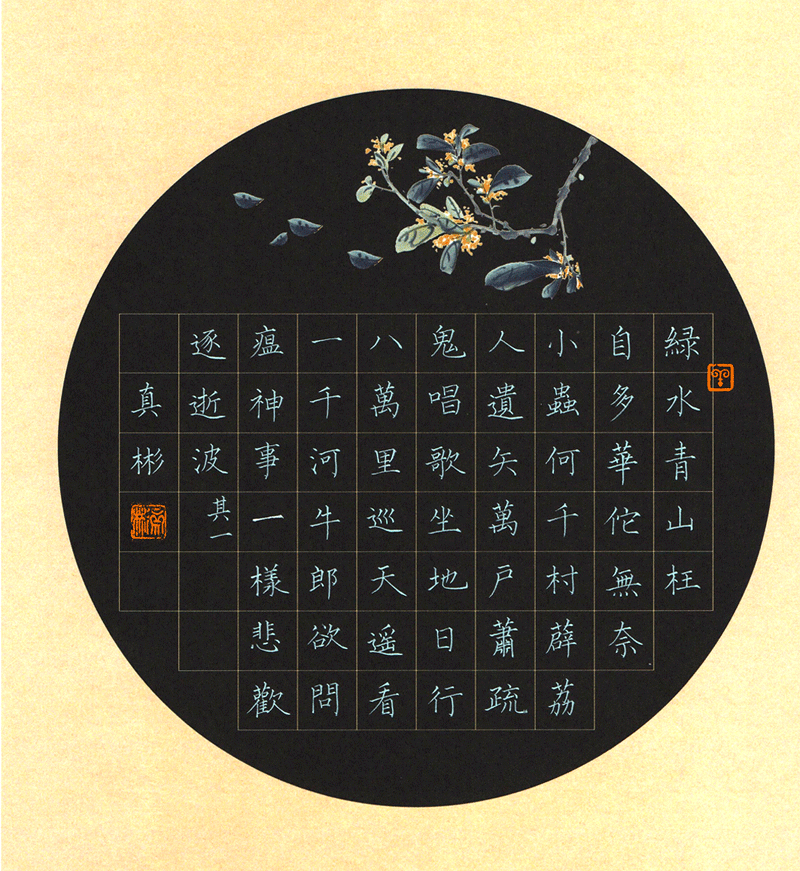 緑水青山枉
自多華佗無奈
小蟲何千村薜荔
人遺矢萬户蕭疏
鬼唱歌坐地日行
八萬里巡天遥看
一千河牛郎欲問
瘟神事一樣悲歡
逐逝波 其一
真彬